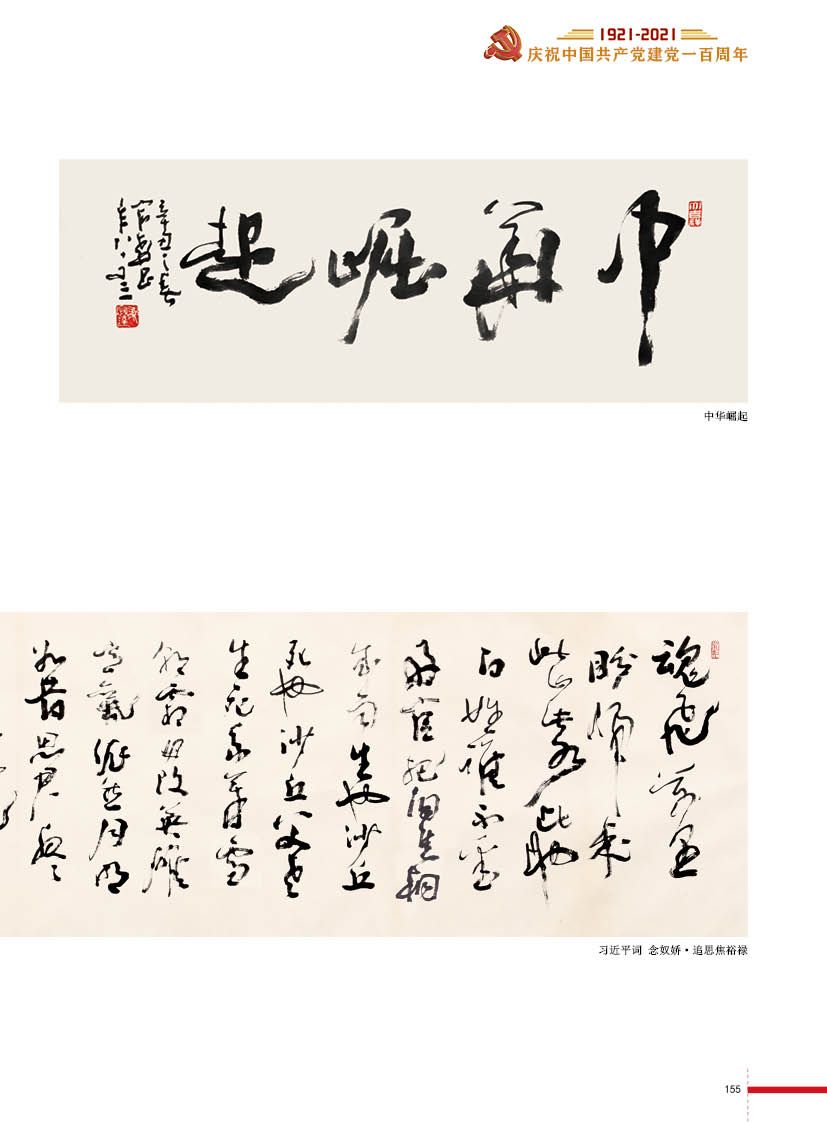 1921-2021
庆祝中国共产党建党一百周年
中華崛起
辛丑之春
年八十又三
中华崛起
魂飛萬里
盼歸来
此水此山此地
百姓誰不愛
好官把泪焦桐
成雨生也沙丘
死也沙丘父老
生死系暮雪
朝霜毋改英雄
意氣依然月明
如昔思君夜々
习近平词 念奴娇·追思焦裕禄
155